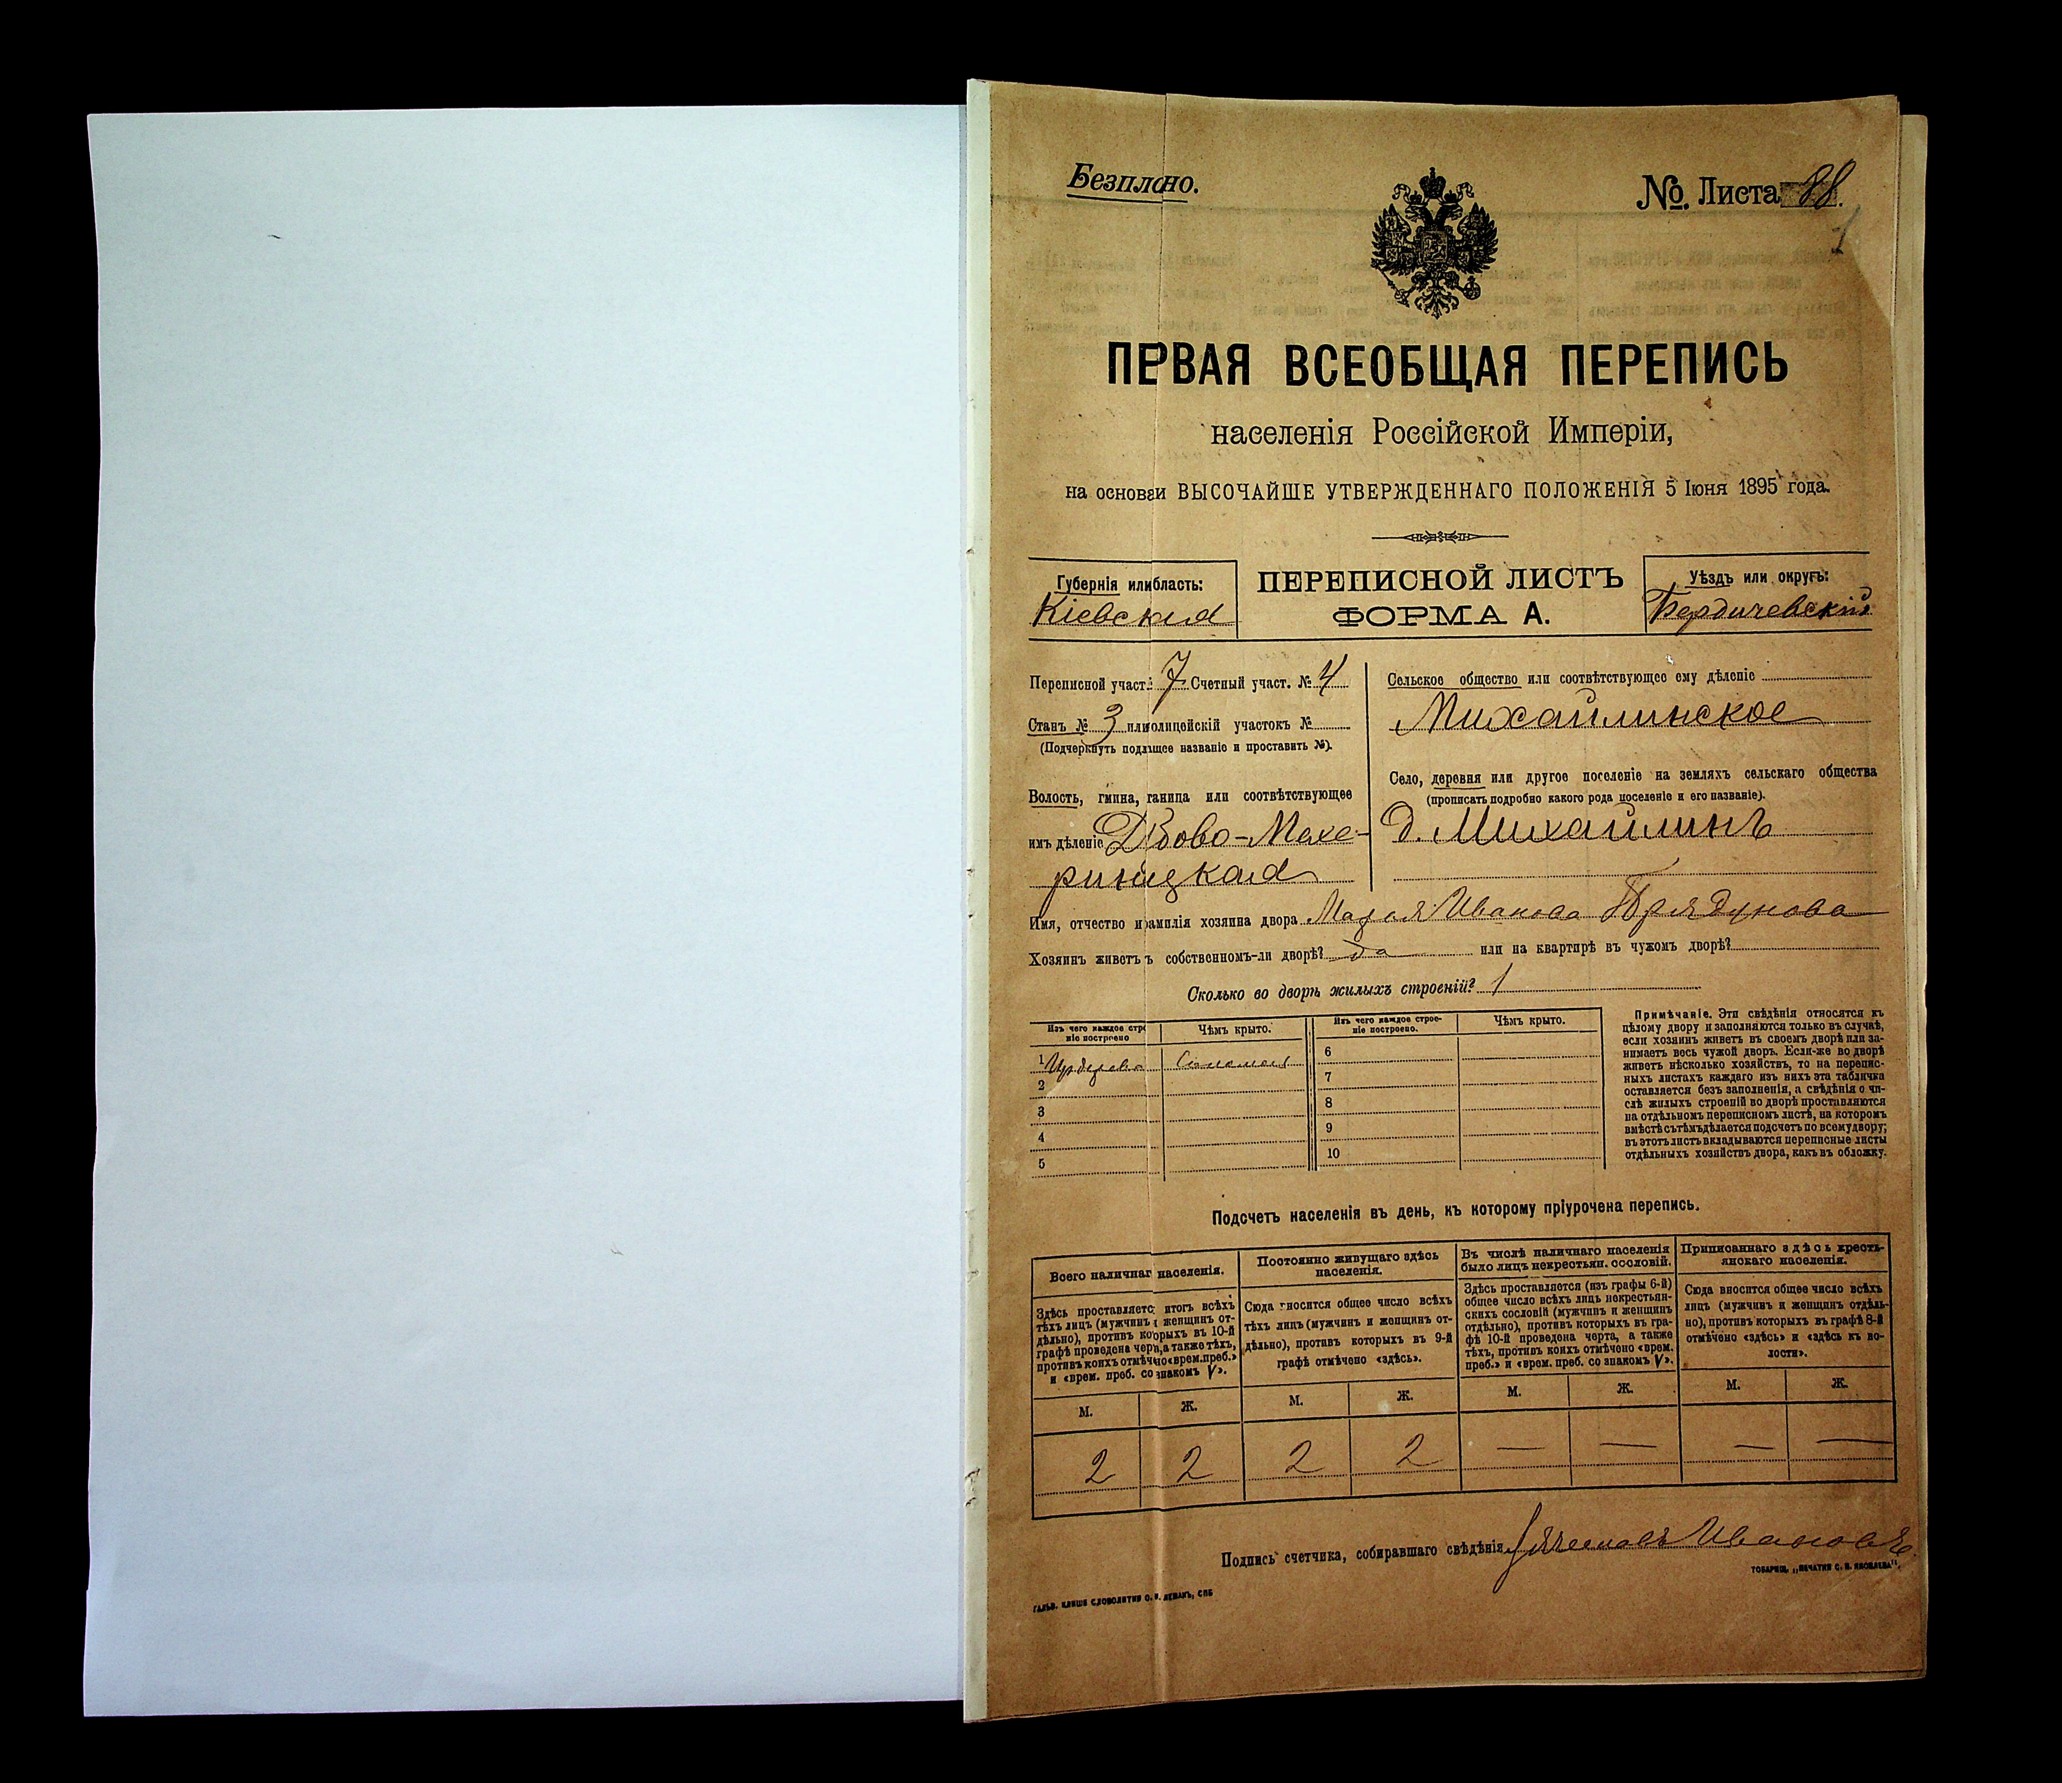 Безплано.
№. Листа 88.
1
ПЕРВАЯ ВСЕОБЩАЯ ПЕРЕПИСЬ
населенія Россійской Имперіи,
на основаи ВЫСОЧАЙШЕ УТВЕРЖДЕННАГО ПОЛОЖЕНІЯ 5 Іюня 1895 года.
Губернія илибласть:
Кіевская
ПЕРЕПИСНОЙ ЛИСТЪ
ФОРМА А.
Уѣздъ или округъ:
Бердичевскій
Переписной участ. 7 Счетный участ. № 4
Станъ № 3 илиолицейскій участокъ №
(Подчеркнуть подлщее названіе и проставить №).
Волость, гмина, таница или соотвѣтствующее
имъ дѣленіе Дзово-Махе-
ринецкая
Сельское общество или соотвѣтствующее ему дѣленіе
Михайлинское
Село, деревня или другое поселеніе на земляхъ сельскаго общества
(прописать подробно какого рода поселеніе и его названіе).
д. Михайлинъ
Имя, отчество и амилія хозяина двора Марья Иванова Прядунова
Хозяинъ живетъ ъ собственномъ-ли дворѣ? да или на квартирѣ въ чужомъ дворѣ?
Сколько во дворѣ жилыхъ строеній? 1
Изъ чего каждое стро
ніе построено
Чѣмъ крыто.
Изъ чего каждое строе-
ніе построено.
Чѣмъ крыто.
1 Издерева Соломою
2
3
4
5
6
7
8
9
10
Примѣчаніе. Эти свѣдѣнія относятся къ
цѣлому двору и заполняются только въ случаѣ,
если хозяинъ живетъ въ своемъ дворѣ или за-
нимаетъ весь чужой дворъ. Если-же во дворѣ
живетъ нѣсколько хозяйствъ, то на перепис-
ныхъ листахъ каждаго изъ нихъ эта табличка
оставляется безъ заполненія, а свѣдѣнія о чи-
слѣ жилыхъ строеній во дворѣ проставляются
на отдѣльномъ переписномъ листѣ, на которомъ
вмѣстѣ съ тѣмъ дѣлается подсчетъ по всему двору;
въ этотъ листъ вкладываются переписные листы
отдѣльныхъ хозяйствъ двора, какъ въ обложку.
Подсчетъ населенія въ день, къ которому пріурочена перепись.
Всего наличнаг населенія.
Здѣсь проставляетс итогъ всѣхъ
тѣхъ лицъ (мужчинъ женщинъ от-
дѣльно), противъ которыхъ въ 10-й
графѣ проведена черта, а также тѣхъ,
противъ коихъ отмѣчено «врем. преб.»
и «врем. преб. со знакомъ V».
Постоянно живущаго здѣсь
населенія.
Сюда вносится общее число всѣхъ
тѣхъ лицъ (мужчинъ и женщинъ от-
дѣльно), противъ которыхъ въ 9-й
графѣ отмѣчено «здѣсь».
Въ числѣ наличнаго населенія
было лицъ некрестьян. сословій.
Здѣсь проставляется (изъ графы 6-й)
общее число всѣхъ лицъ некрестьян-
скихъ сословій (мужчинъ и женщинъ
отдѣльно), противъ которыхъ въ гра-
фѣ 10-й проведена черта, а также
тѣхъ, противъ коихъ отмѣчено «врем.
преб.» и «врем. преб. со знакомъ V».
Приписаннаго здѣсь кресть-
янскаго населенія.
Сюда вносится общее число всѣхъ
лицъ (мужчинъ и женщинъ отдѣль-
но), противъ которыхъ въ графѣ 8-й
отмѣчено «здѣсь» и «здѣсь къ во-
лости».
М. Ж. М. Ж. М. Ж. М. Ж.
2 2 2 2 — — — —
Подпись счетчика, собиравшаго свѣдѣнія Ивановъ
ТОВАРИЩ. „ПЕЧАТНИ С. П. ЯКОВЛЕВА".
ГАЛЬВ. КЛИШЕ СЛОВОЛИТНИ О. И. ЛЕМАНЪ, СПБ